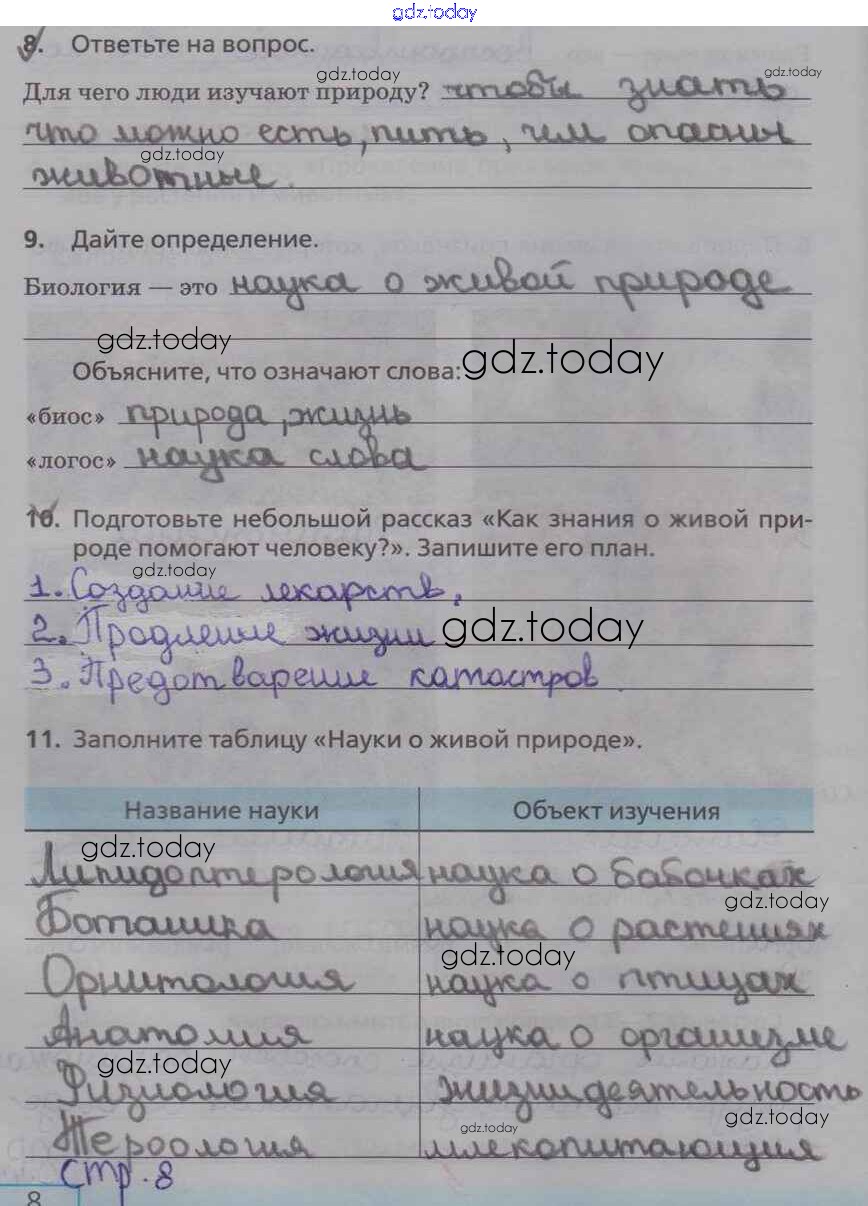 gdz.today
8. Ответьте на вопрос.
gdz.today gdz.today
Для чего люди изучают природу? чтобы знать
что можно есть, пить, чем опасны
gdz.today
животные.
9. Дайте определение.
Биология — это наука о живой природе
gdz.today gdz.today
Объясните, что означают слова:
«биос» природа, жизнь
«логос» наука слова
10. Подготовьте небольшой рассказ «Как знания о живой при-
роде помогают человеку?». Запишите его план.
gdz.today
1. Создание лекарств.
2. Продление жизни gdz.today
3. Предотварение катастров
11. Заполните таблицу «Науки о живой природе».
Название науки Объект изучения
gdz.today
Липидоптерология наука о бабочках
gdz.today
Ботаника наука о растениях
gdz.today
Орнитология наука о птицах
Анатомия наука о организме
gdz.today
Физиология жизнидеятельность
gdz.today gdz.today
Тероология млекопитающия
стр. 8
8